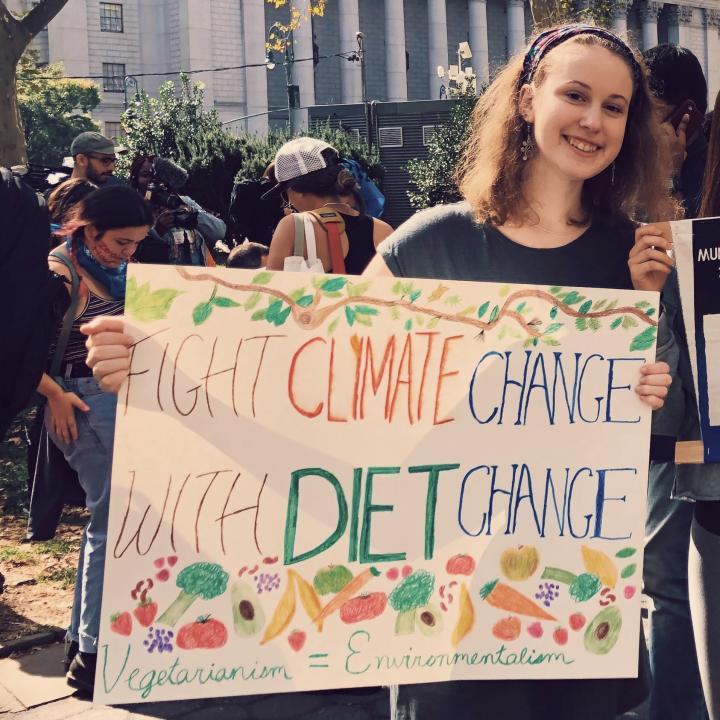 FIGHT CLIMATE CHANGE
WITH DIET CHANGE
Vegetarianism = Environmentalism